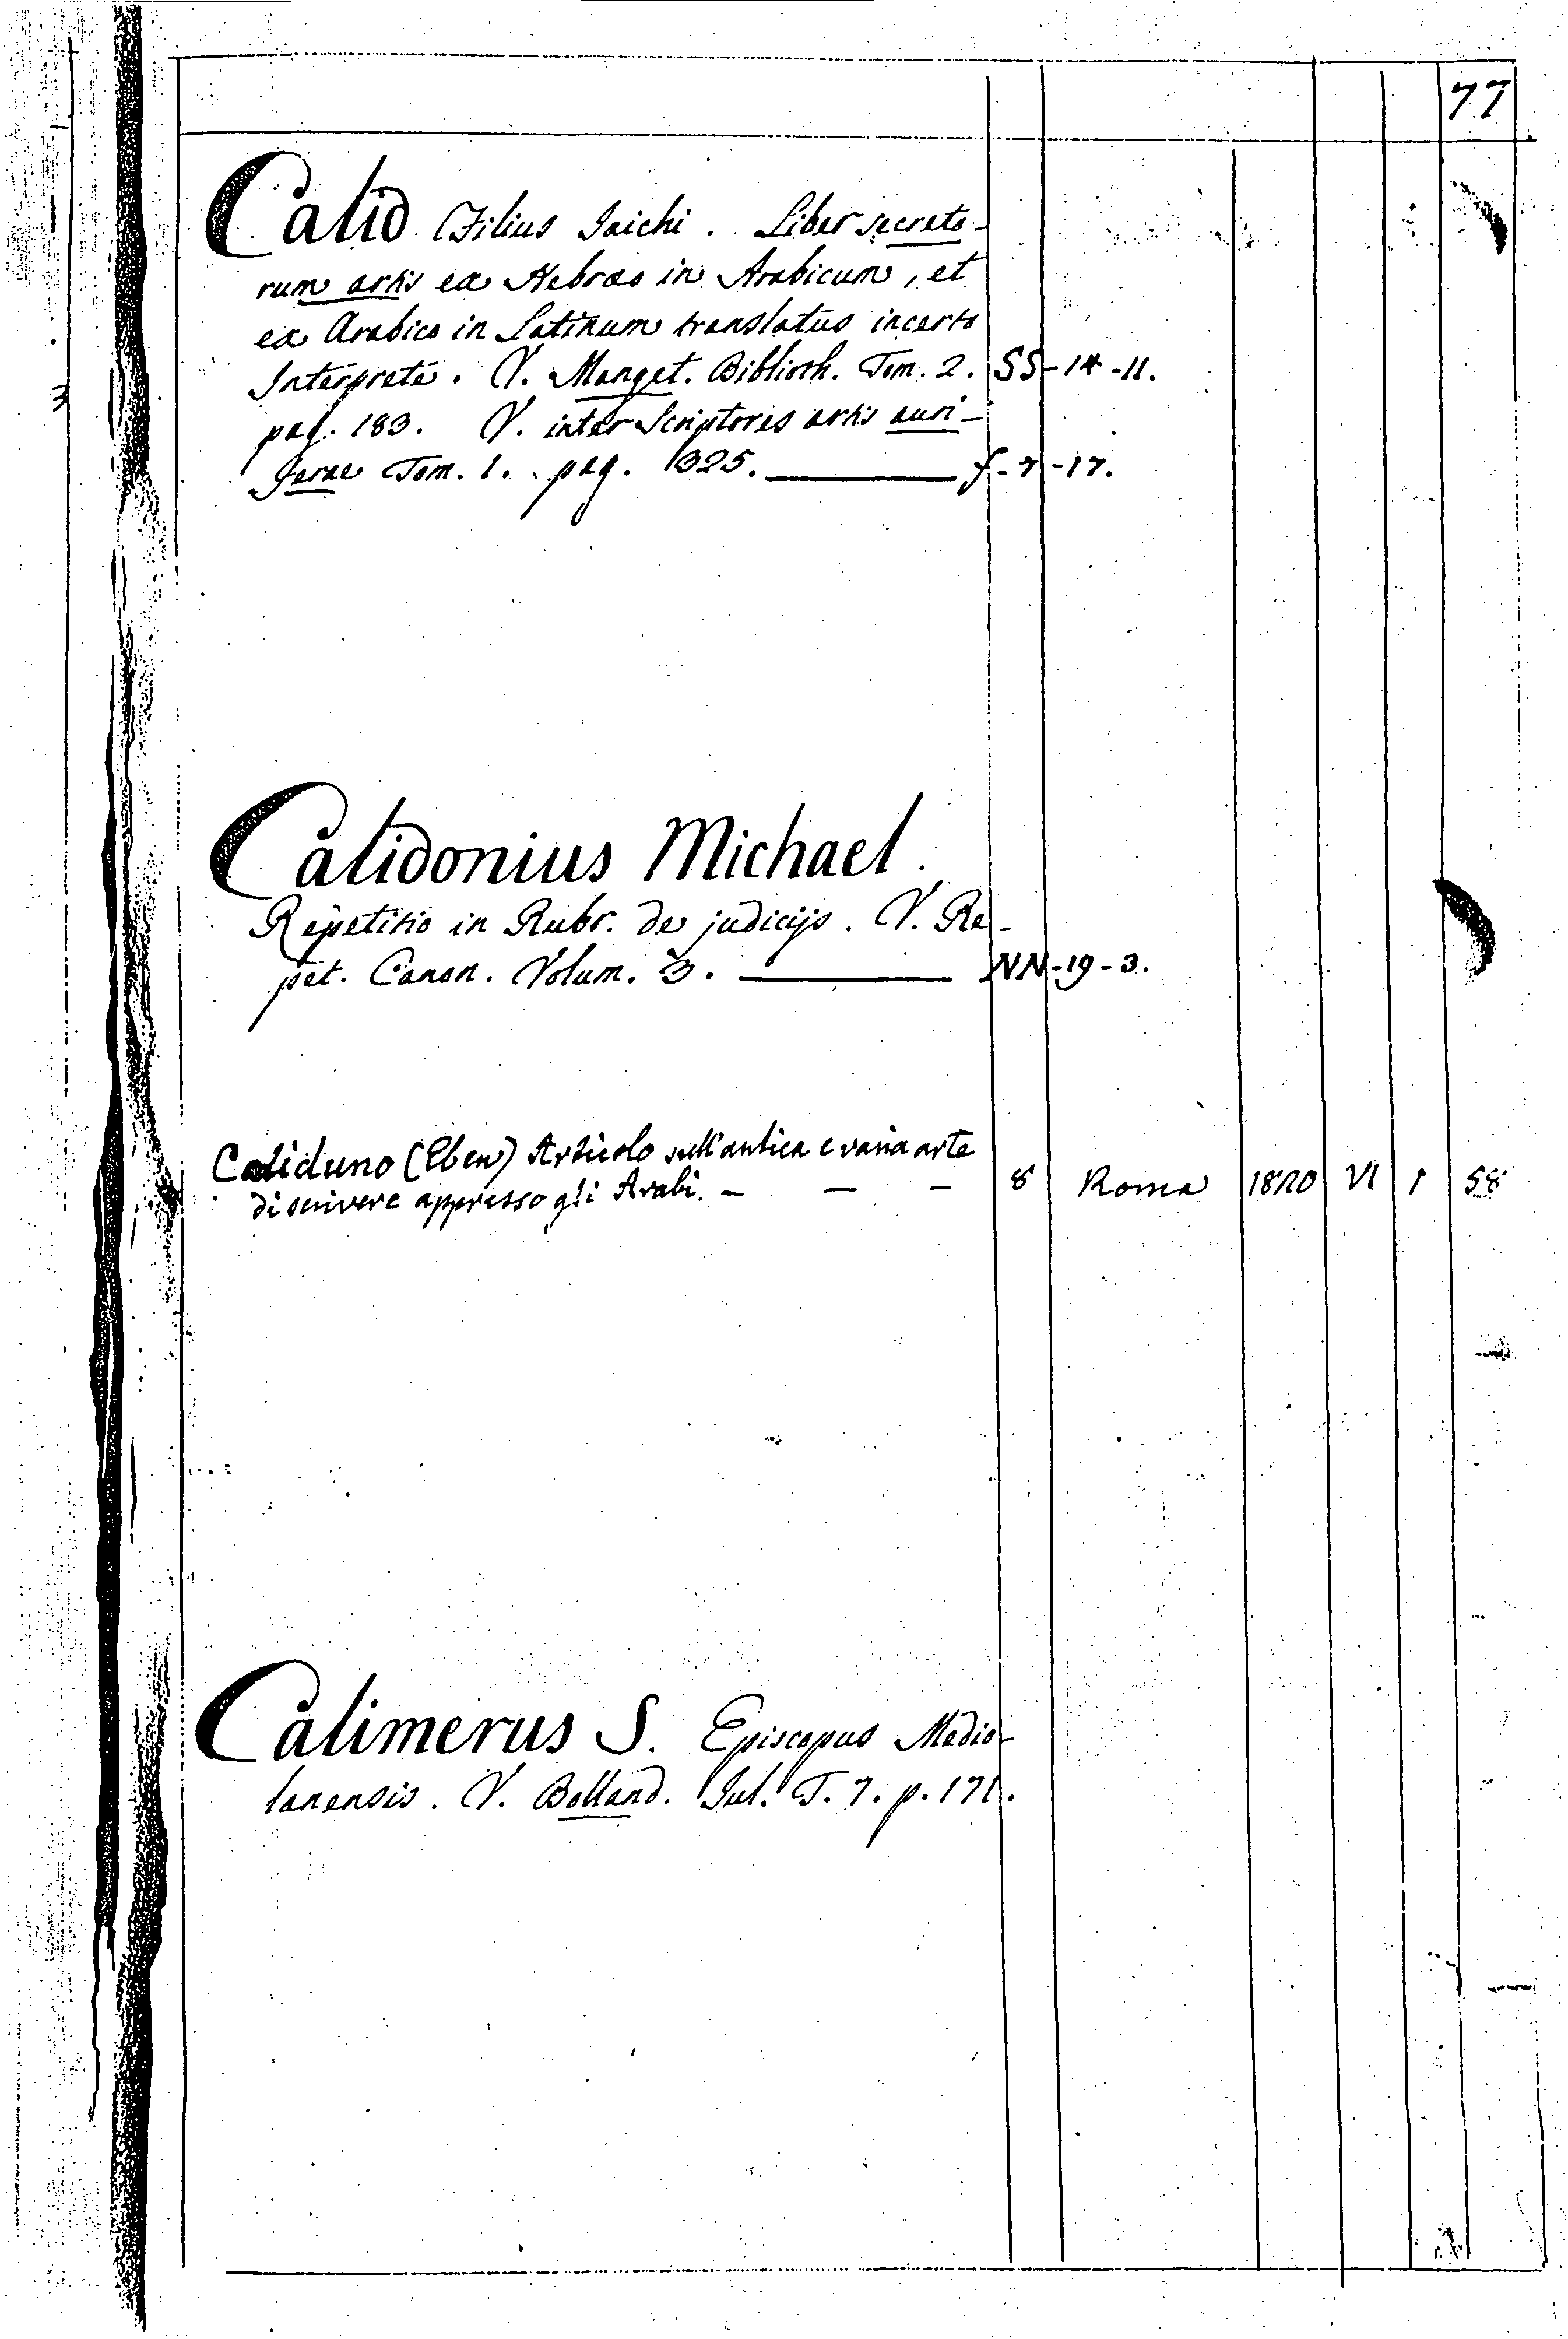 77
Calid Filius Jaichi. Liber secreto-
rum artis ex Hebræo in Arabicum, et
ex Arabico in Latinum translatus incerto
Interprete. V. Manget. Biblioth. Tom. 2. SS-14-11.
pag. 183. V. inter Scriptores artis auri-
ferae Tom. 1. pag. 325. f-7-17.
Calidonius Michael.
Repetitio in Rubr. de judicijs. V. Re-
pet. Canon. Volum. 3. NN-19-3.
Caliduno (Eben) Articolo sull'antica e varia arte
di scrivere appresso gli Arabi. - - - 8 Roma 1820 VI 1 58
Calimerus S. Episcopus Medio-
lanensis. V. Bolland. Jul. T. 7. p. 171.